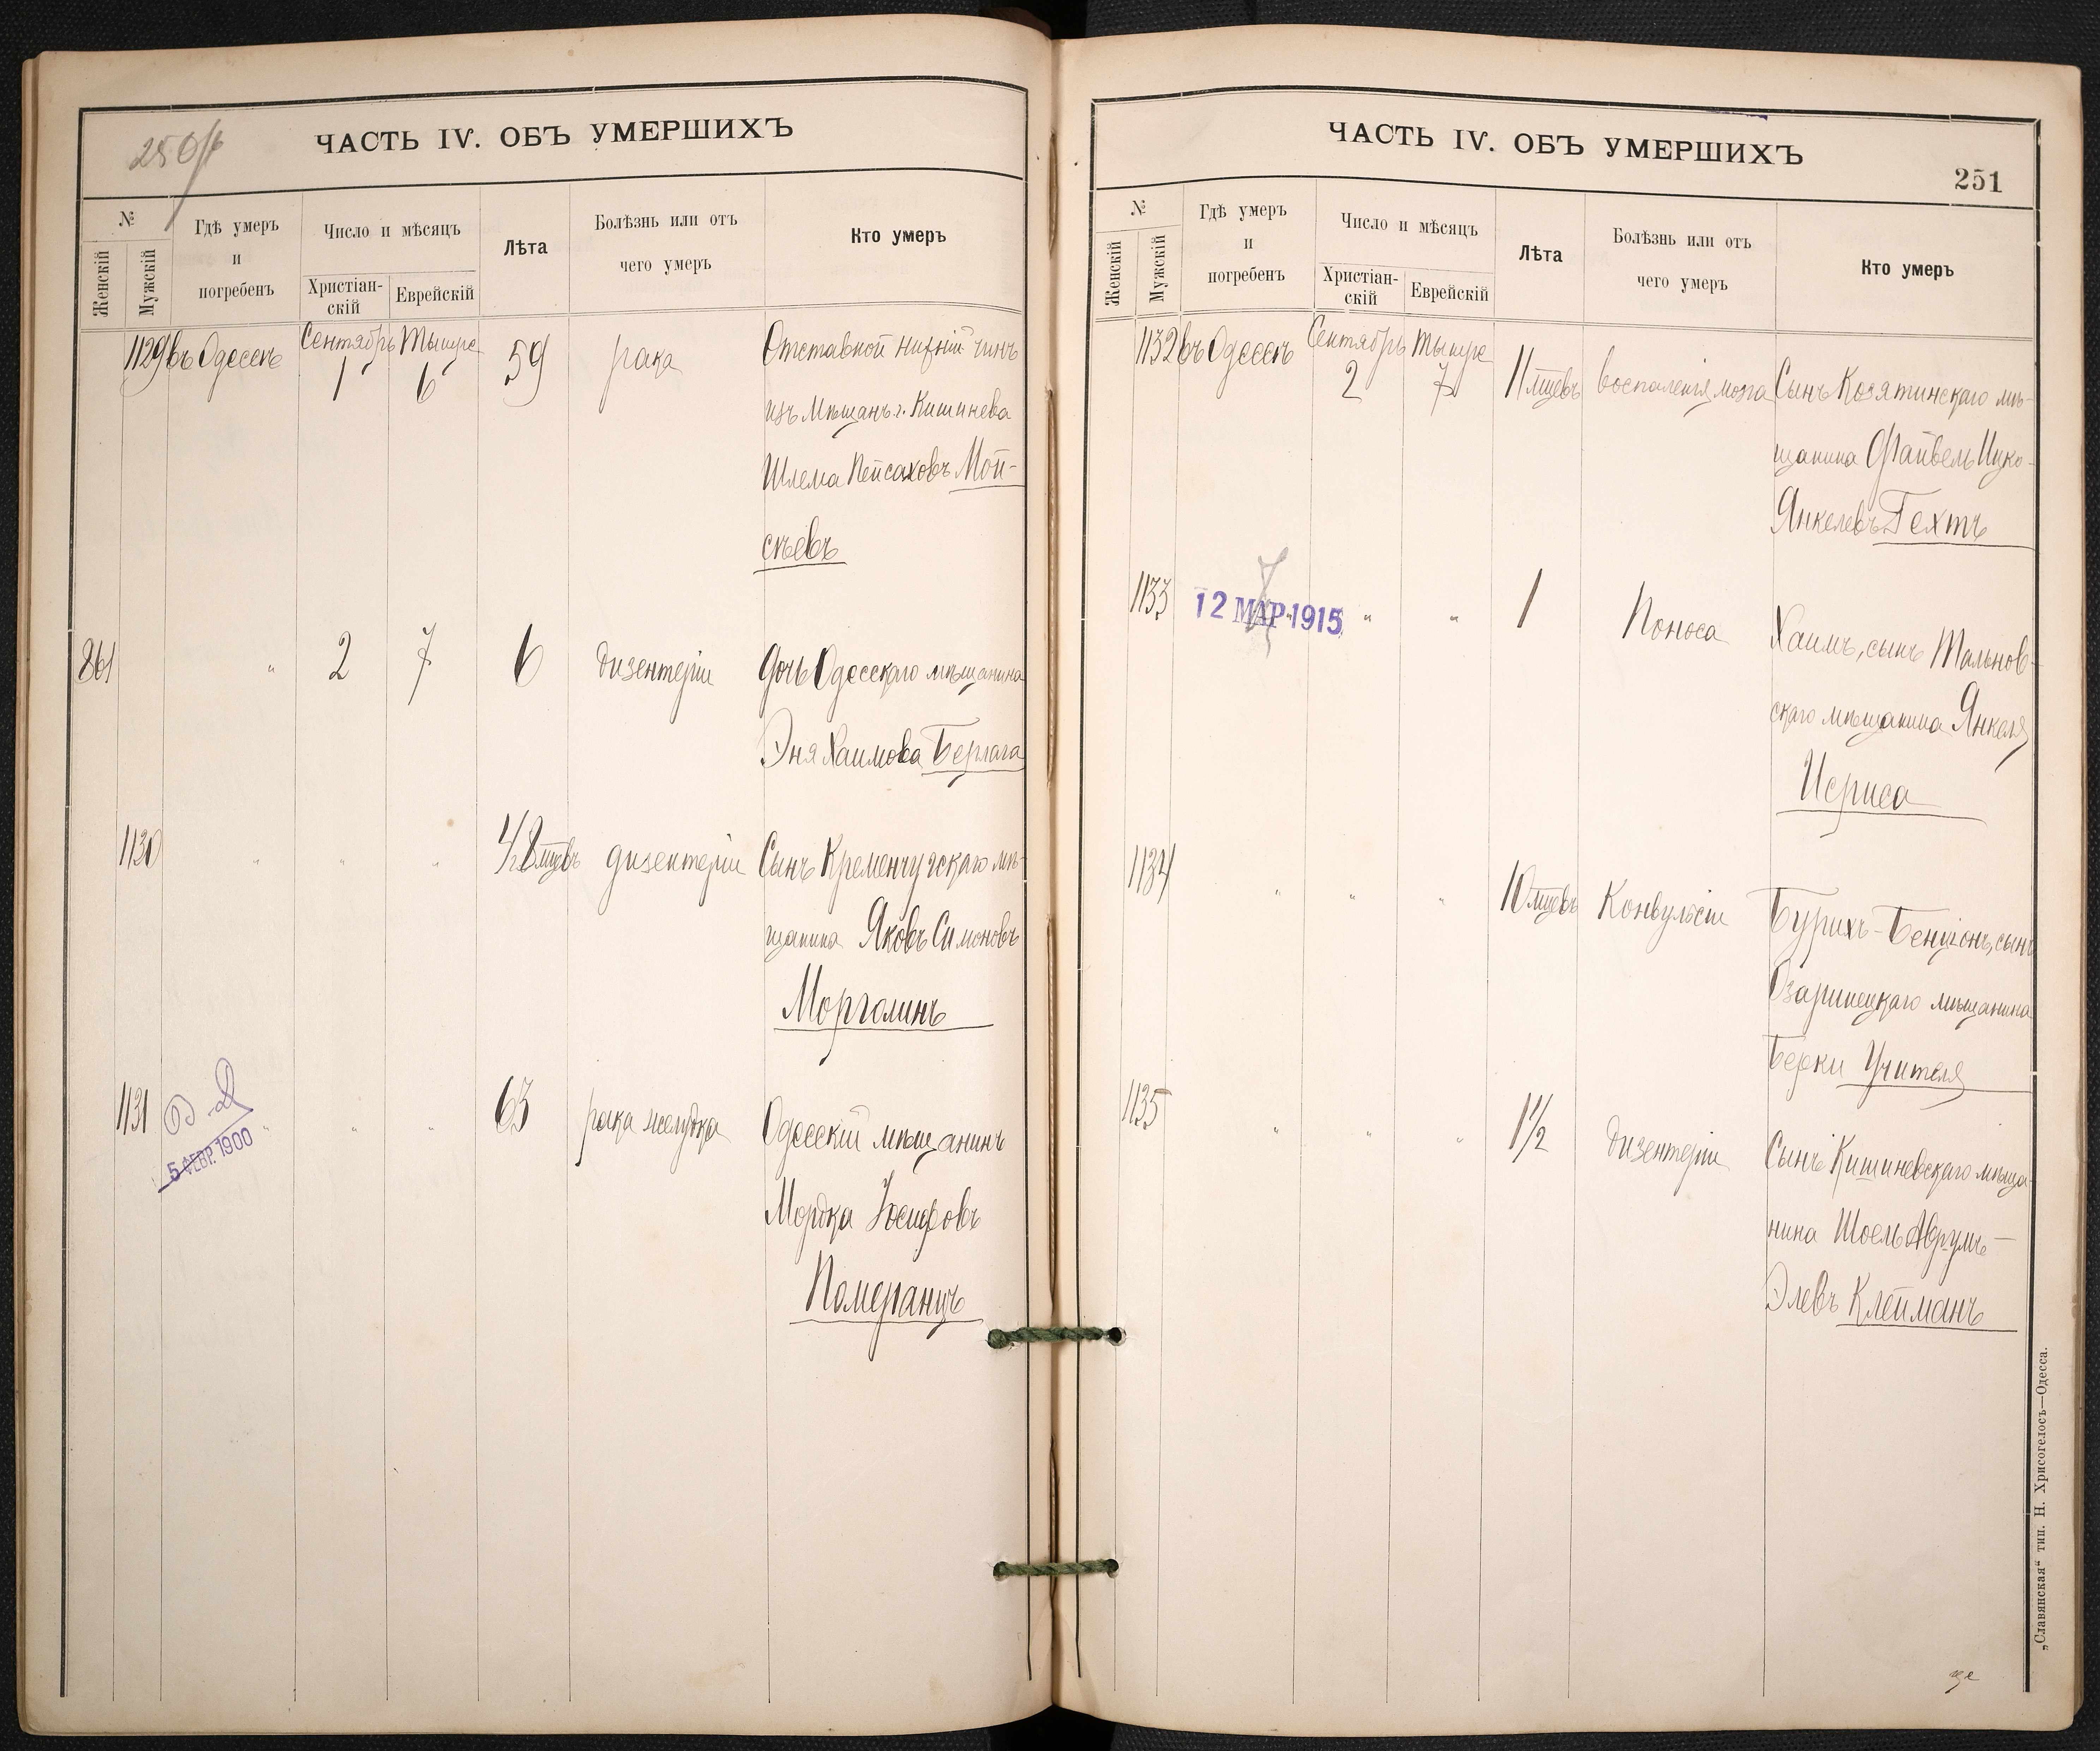 250/б
ЧАСТЬ IV. ОБЪ УМЕРШИХЪ
№
Женскій
Мужскій
Гдѣ умеръ
и
погребенъ
Число и мѣсяцъ
Христіан-
скій
Еврейскій
Лѣта
Болѣзнь или отъ
чего умеръ
Кто умеръ
1129 въ Одессѣ Сентябрь Тышре 59 рака Отставной нижній чинъ
1 6
изъ мѣщанъ г. Кишинева
Шлема Пейсаховъ Мой-
сѣевъ
861 " 2 7 6 дизентеріи Дочь Одесскаго мѣщанина
Эня Хаимова Берлага
1130 " " " 1/2 8 мцевъ дизентеріи Сынъ Кременчугскаго мѣ-
щанина Яковъ Симоновъ
Морголинъ
1131 " " " 63 рака желудка Одесскій мѣщанинъ
5 ФЕВР. 1900
Мордка Іосифовъ
Померанцъ
ЧАСТЬ IV. ОБЪ УМЕРШИХЪ
251
№
Женскій
Мужскій
Гдѣ умеръ
и
погребенъ
Число и мѣсяцъ
Христіан-
скій
Еврейскій
Лѣта
Болѣзнь или отъ
чего умеръ
Кто умеръ
1132 въ Одессѣ Сентябрь Тышре 11 мцевъ воспаленія мозга Сынъ Козятинскаго мѣ-
2 7
щанина Файвель Ицко-
Янкелевъ Гехтъ
1133 " " " 1 Поноса Хаимъ, сынъ Тальнов-
12 МАР. 1915
скаго мѣщанина Янкеля
Исриса
1134 " " " 10 мцевъ Конвульсіи Бурихъ-Бенціонъ, сынъ
Озаринецкаго мѣщанина
Берки Учителя
1135 " " " 1 1/2 дизентеріи Сынъ Кишиневскаго мѣща-
нина Шоель Аврумъ-
Элевъ Клейманъ
„Славянская“ тип. Н. Хрисогелосъ—Одесса.